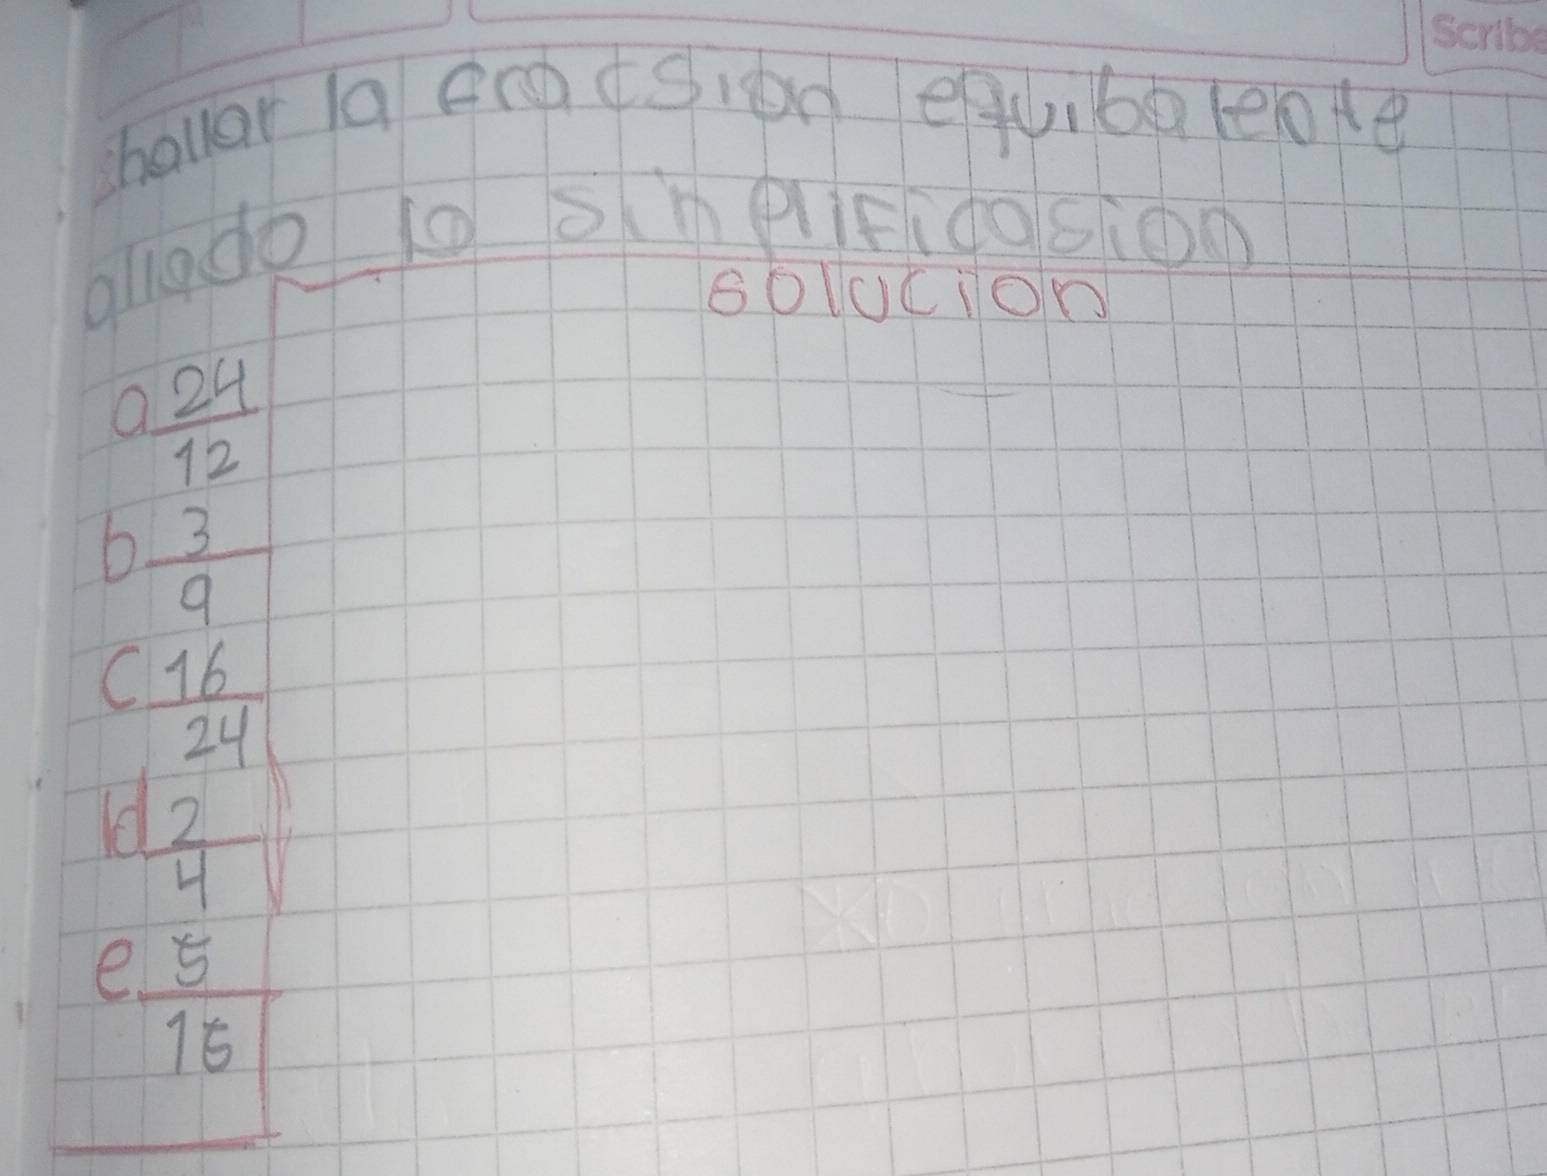 Scribe
hallar la fracsion equibalente
allado la sinplificasion
solucion
a 24
12
b 3
9
c 16
24
d 2
4
e 5
15